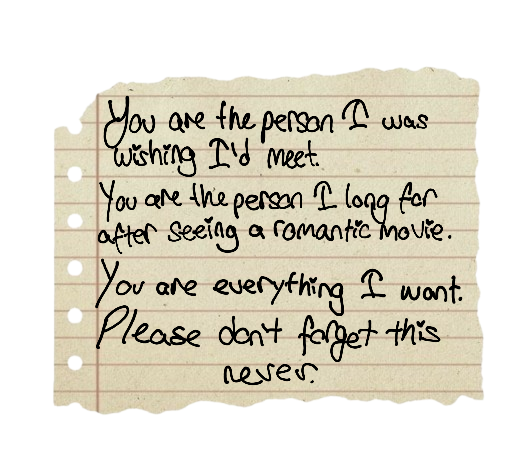 You are the person I was
wishing I'd meet.
You are the person I long for
after seeing a romantic movie.
You are everything I want.
Please don't forget this
never.